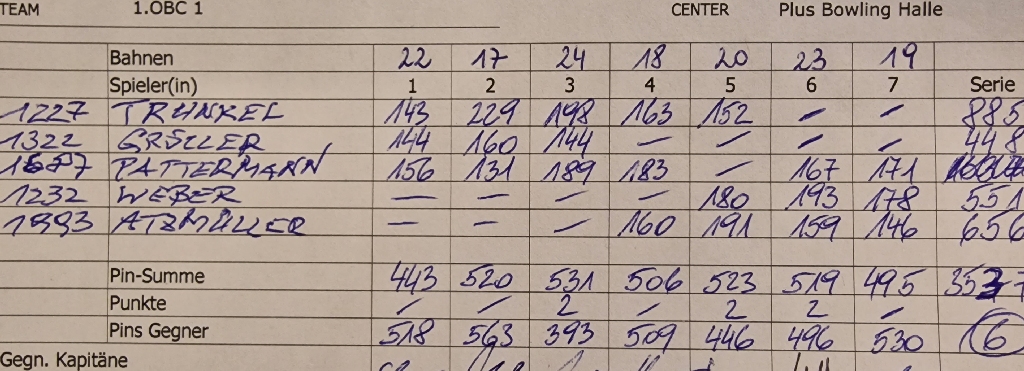 TEAM 1.OBC 1 CENTER Plus Bowling Halle
Bahnen 22 17 24 18 20 23 19
Spieler(in) 1 2 3 4 5 6 7 Serie
1227 TRUNKEL 143 229 198 163 152 – – 885
1322 GRÖLLER 144 160 144 – – – – 448
PATTERMANN 156 131 189 183 – 167 171
1232 WEBER – – – – 180 193 178 551
1993 ATZMÜLLER – – – 160 191 159 146 656
Pin-Summe 443 520 531 506 523 519 495 3537
Punkte – – 2 – 2 2 –
Pins Gegner 518 563 393 509 446 496 530 6
Gegn. Kapitäne